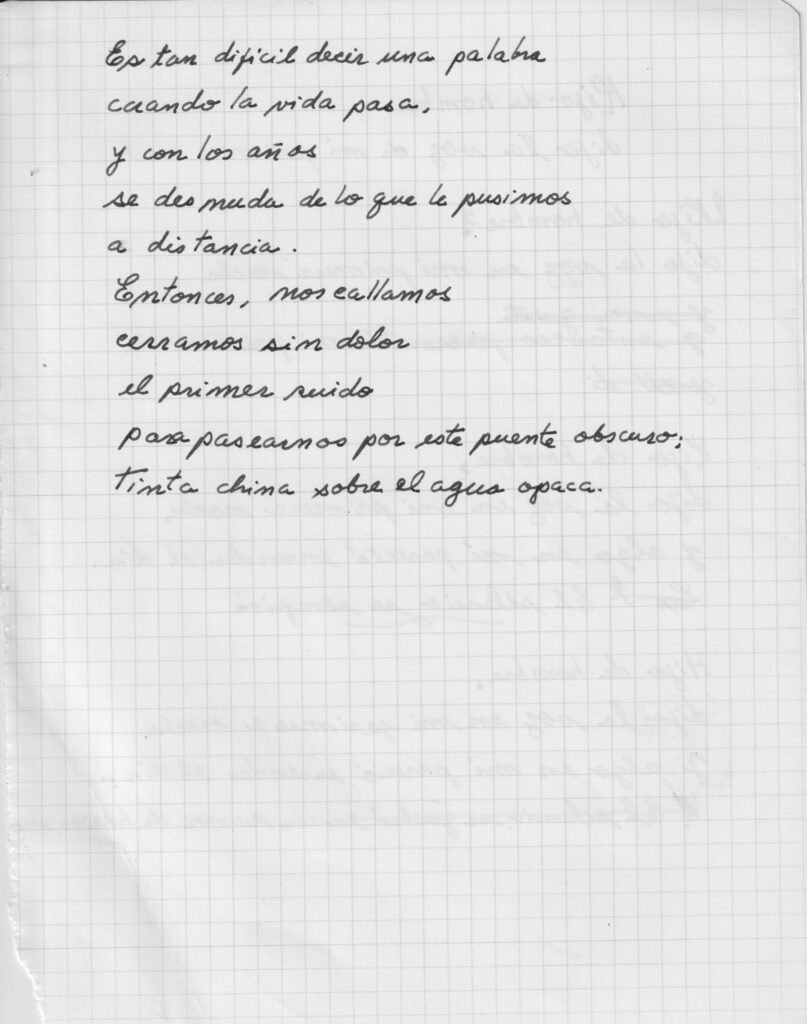 Es tan dificil decir una palabra
cuando la vida pasa,
y con los años
se desnuda de lo que le pusimos
a distancia.
Entonces, nos callamos
cerramos sin dolor
el primer ruido
para pasearnos por este puente obscuro;
tinta china sobre el agua opaca.